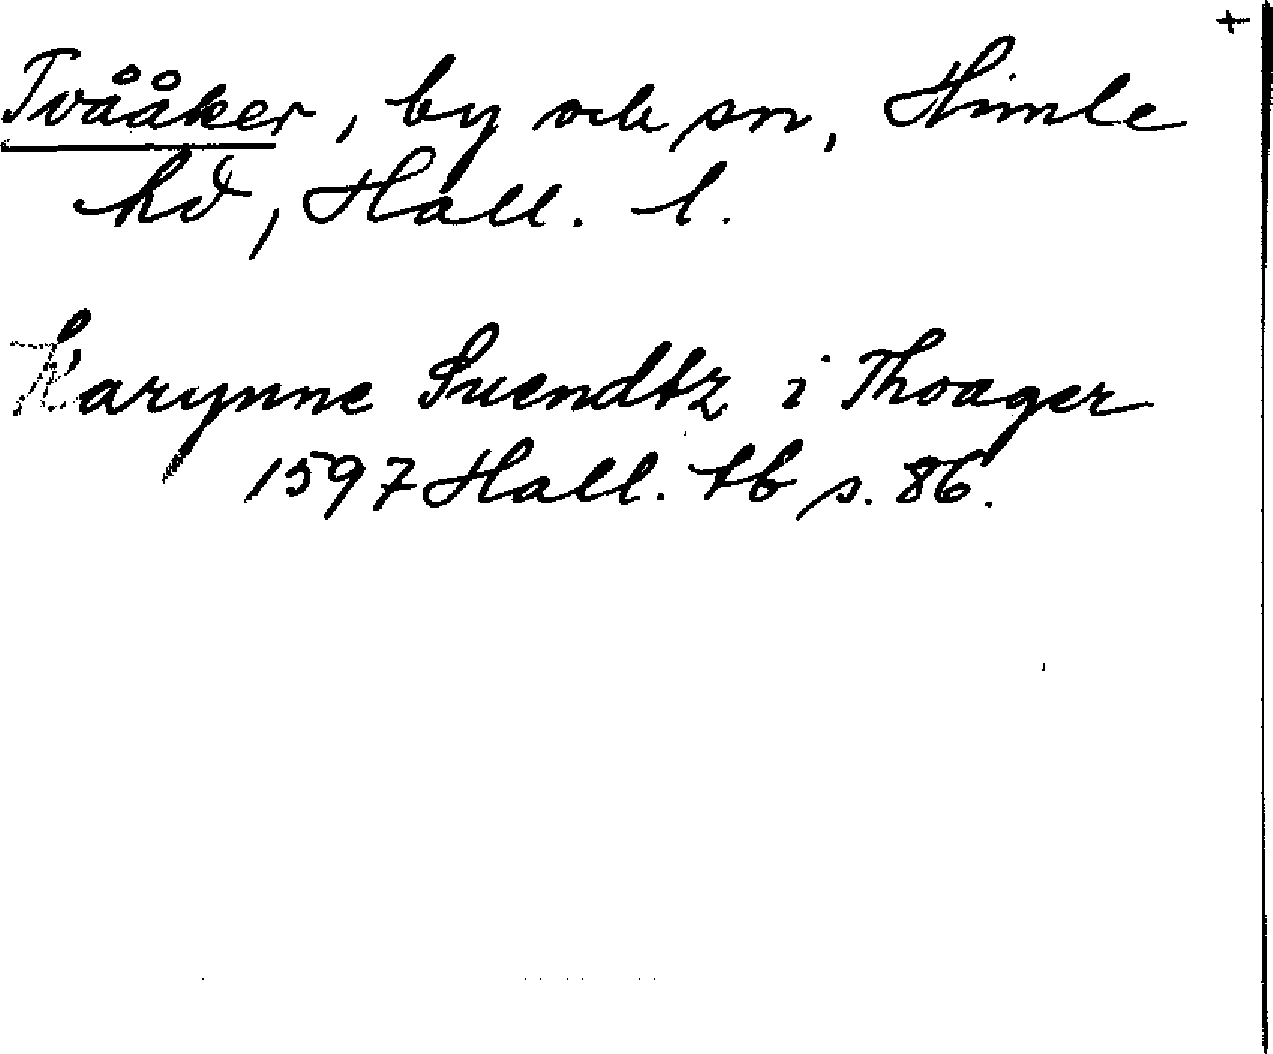 +
Tvååker, by och sn, Himle
hd, Hall. l.
Karynne Suendtz i Thoager
1597 Hall. tb s. 86.